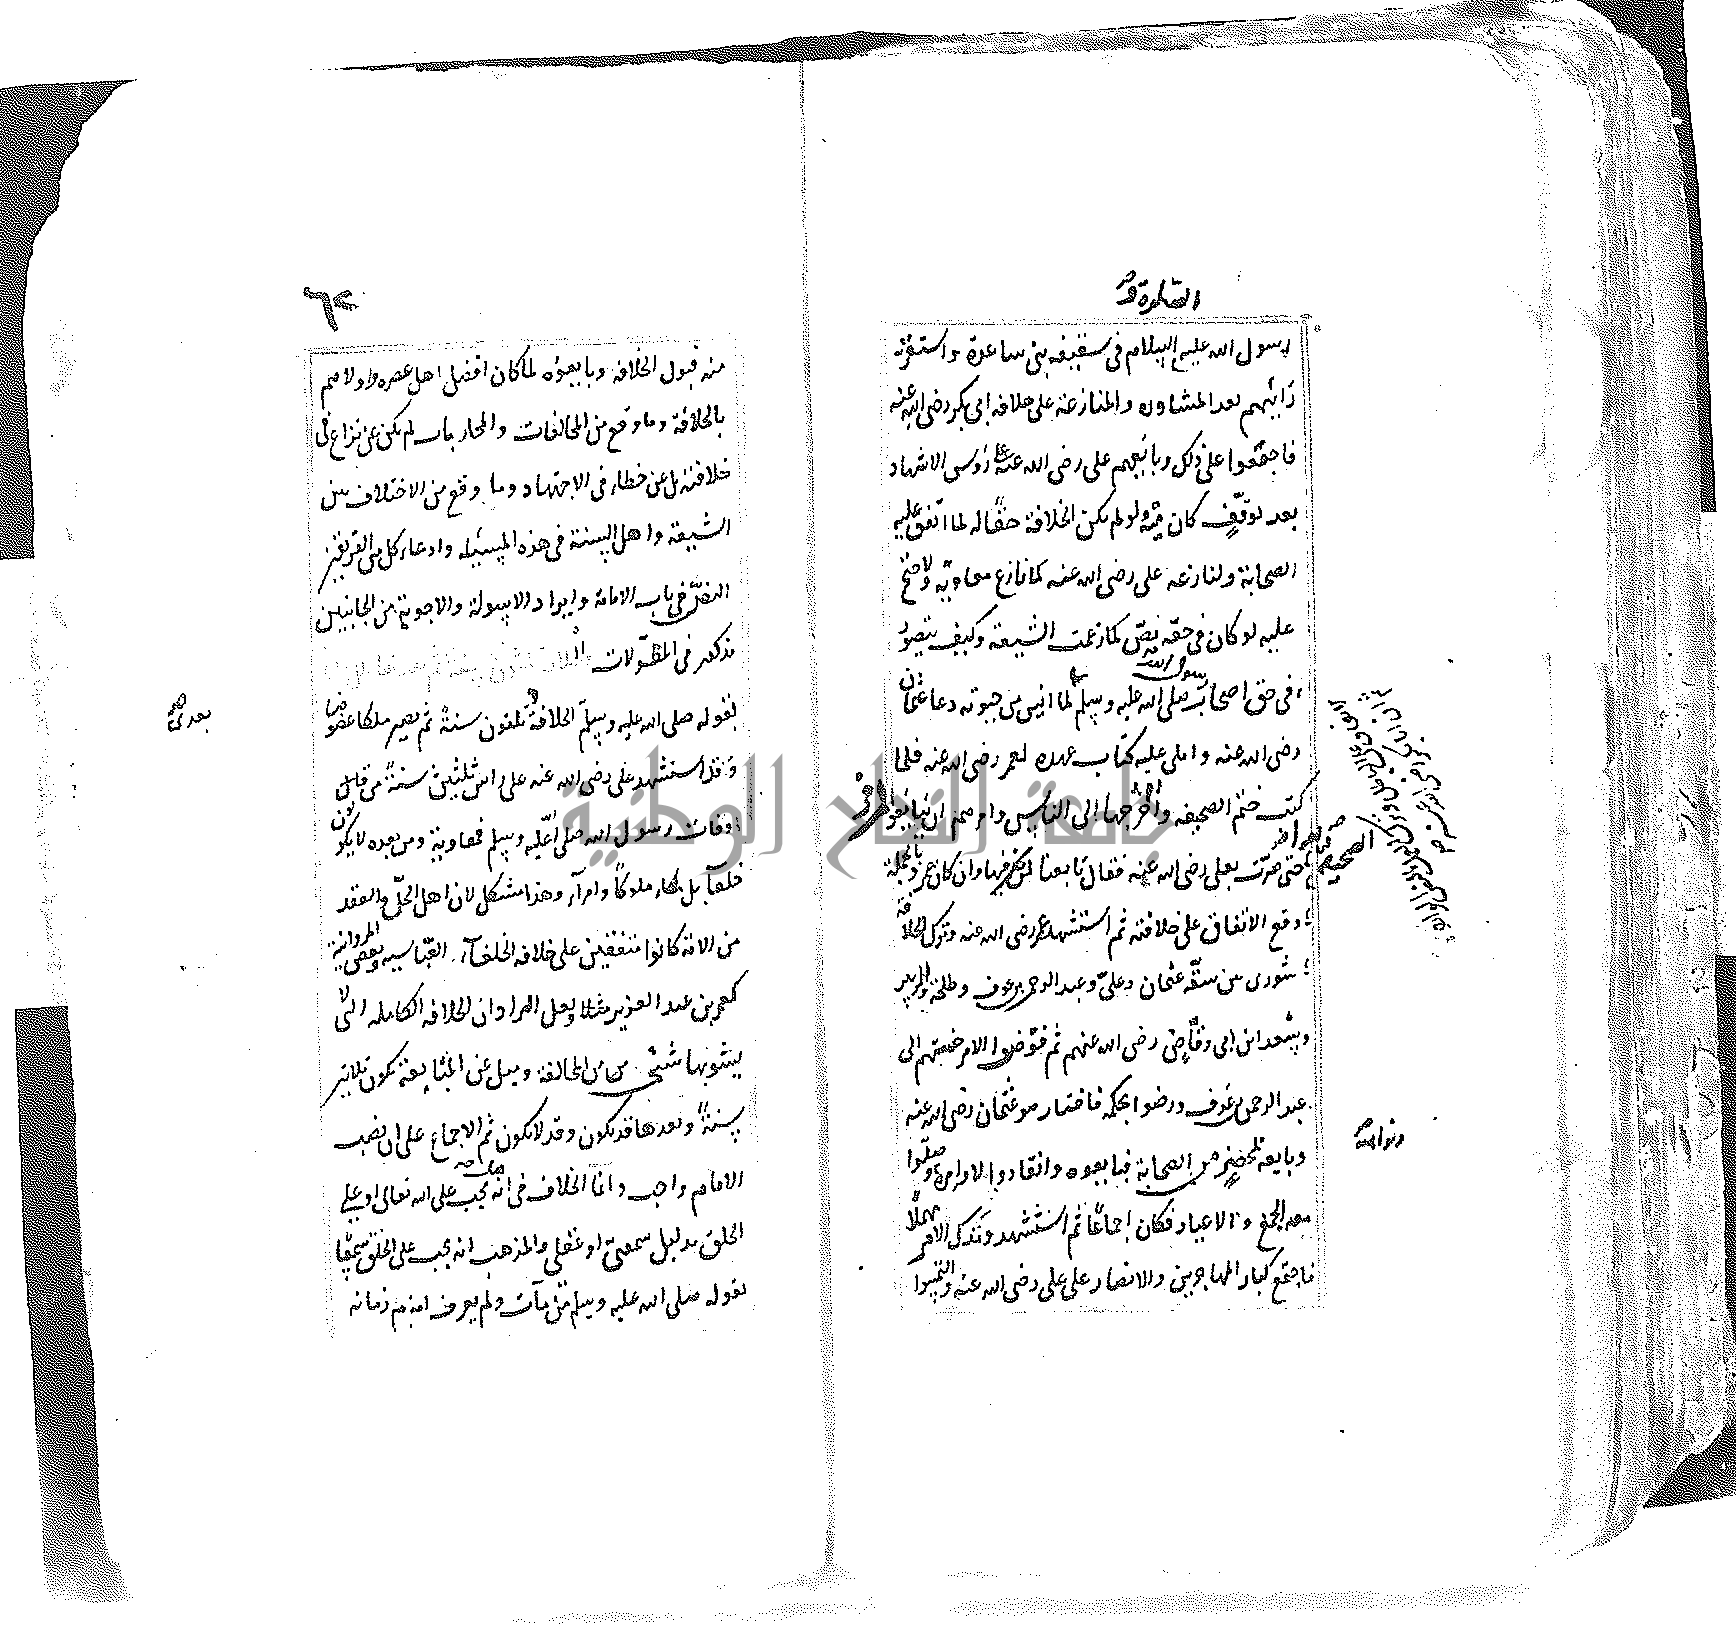 الصلوة و
رسول الله عليه السلام في سقيفه بنى ساعدة واستقرت
رائهم بعد المشاوره والمنازعة على خلافه ابى بكر رضى الله عنه
فاجمعوا على ذلك وبايعهم على رضى الله عنه على رؤس الاشهاد
بعد توقّفٍ كان منه ولو لم يكن الخلافة حقّا له لما اتفق عليه
الصحابة ولنازعه على رضى الله عنه كما نازع معاوية ولاحتج
عليه لو كان فى حقه نص كما زعمت الشيعة وكيف يتصور
فى حق اصحاب رسول الله صلى الله عليه وسلم لما ايس من حيوته دعا عثمان
رضى الله عنه واملى عليه كتاب عهده لعمر رضى الله عنه فلما
كتب ختم الصحيفه واخرجها الى الناس وامرهم ان يبايعوا لمن فى
الصحيفة
حتى مرت بعلى رضى الله عنه فقال بايعنا لمن فيها وان كان عمر وبالجملة
وقع الاتفاق على خلافته ثم استشهد عمر رضى الله عنه وترك الخلافة
شورى بين ستّة عثمان وعلىّ وعبد الرحمن بن عوف وطلحة والزبير
وسعد ابن ابى وقّاص رضى الله عنهم ثم فوّضوا الامر خمستهم الى
عبد الرحمن بن عوف ورضوا بحكمه فاختار هو عثمان رضى الله عنه
وبايعه بمحضرٍ من الصحابة فبايعوه وانقادوا لاوامره وصلّوا
معه الجمع والاعياد فكان اجماعًا ثم استشهد وترك الامر مهملا
فاجتمع كبار المهاجرين والانصار على على رضى الله عنه والتمسوا
٦٢
منه قبول الخلافة وبايعوه لما كان افضل اهل عصره واولاهم
بالخلافة وما وقع من المخالفات والمحاربات لم يكن عن نزاع فى
خلافته بل عن خطاء فى الاجتهاد وما وقع من الاختلاف بين
الشيعة واهل السنة فى هذه المسئلة وادعاء كل من الفريقين
النصّ فى باب الامامة وايراد الاسولة والاجوبة من الجانبين
مذكور فى المطوّلات
بعدى
لقوله صلى الله عليه وسلّم الخلافة ثلثون سنةً ثم يصير ملكا عضوضا
وقد استشهد على رضى الله عنه على رأس ثلثين سنةً من
وفات رسول الله صلى الله عليه وسلم فمعاوية ومن بعده لا يكون
خلفآ بل ملوكًا وامرآء وهذا مشكل لان اهل الحلّ والعقد
من الامة كانوا متفقين على خلافه الخلفآء العبّاسيه وبعض المروانية
كعمر بن عبد العزيز مثلا ولعل المراد ان الخلافه الكامله التى لا
يشوبها شئ من المخالفة وميل عن المتابعة تكون ثلاثين
سنةً وبعدها قد يكون وقد لا يكون ثم الاجماع على ان نصب
الامام واجب وانّما الخلاف فى انه هل يجب على الله تعالى او على
الخلق بدليل سمعىّ او عقلى والمذهب انه يجب على الخلق سمعًا
لقوله صلى الله عليه وسلم من مات ولم يعرف امام زمانه